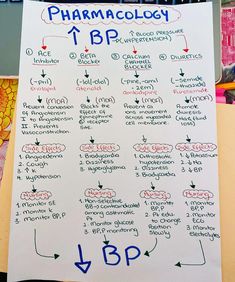 PHARMACOLOGY
↑ BP
↑ BLOOD PRESSURE
(HYPERTENSION)
① ACE Inhibitor
② BETA Blocker
③ CALCIUM CHANNEL BLOCKER
④ DIURETICS
(-pril)
Enalapril
(MOA)
Prevent conversion
of Angiotensin
I to Angiotensin
II. Prevents
Vasoconstriction
Side Effects
1. Angioedema
2. Cough
3. ↑K
4. Hypotension
Nursing
1. Monitor SE
2. Monitor K
3. Monitor BP, P
(-lol)
Atenolol
(MOA)
Block
effect of
Epinephrine
Side Effects
1. Bradycardia
2. Dizziness
3. Hyperglycemia
Nursing
1. Non-selective
BB → contraindicated
among asthmatic
pt
2. Monitor glucose
3. BP monitoring
(-pine, -ami)
(MOA)
Prevent calcium
ions movement
across
Side Effects
1. Orthostatic
hypotension
2. Dizziness
3. Bradycardia
Nursing
1. Monitor
BP, P
2. Pt edu
to change
Position
slowly
(-semide
-thiazide)
Furosemide
(MOA)
Side Effects
1. ↓ Potassium
2. ↓ Na
3. ↓ BP
Nursing
1. Monitor
K
2. Monitor
ECG
3. Monitor
electrolytes
↓ BP